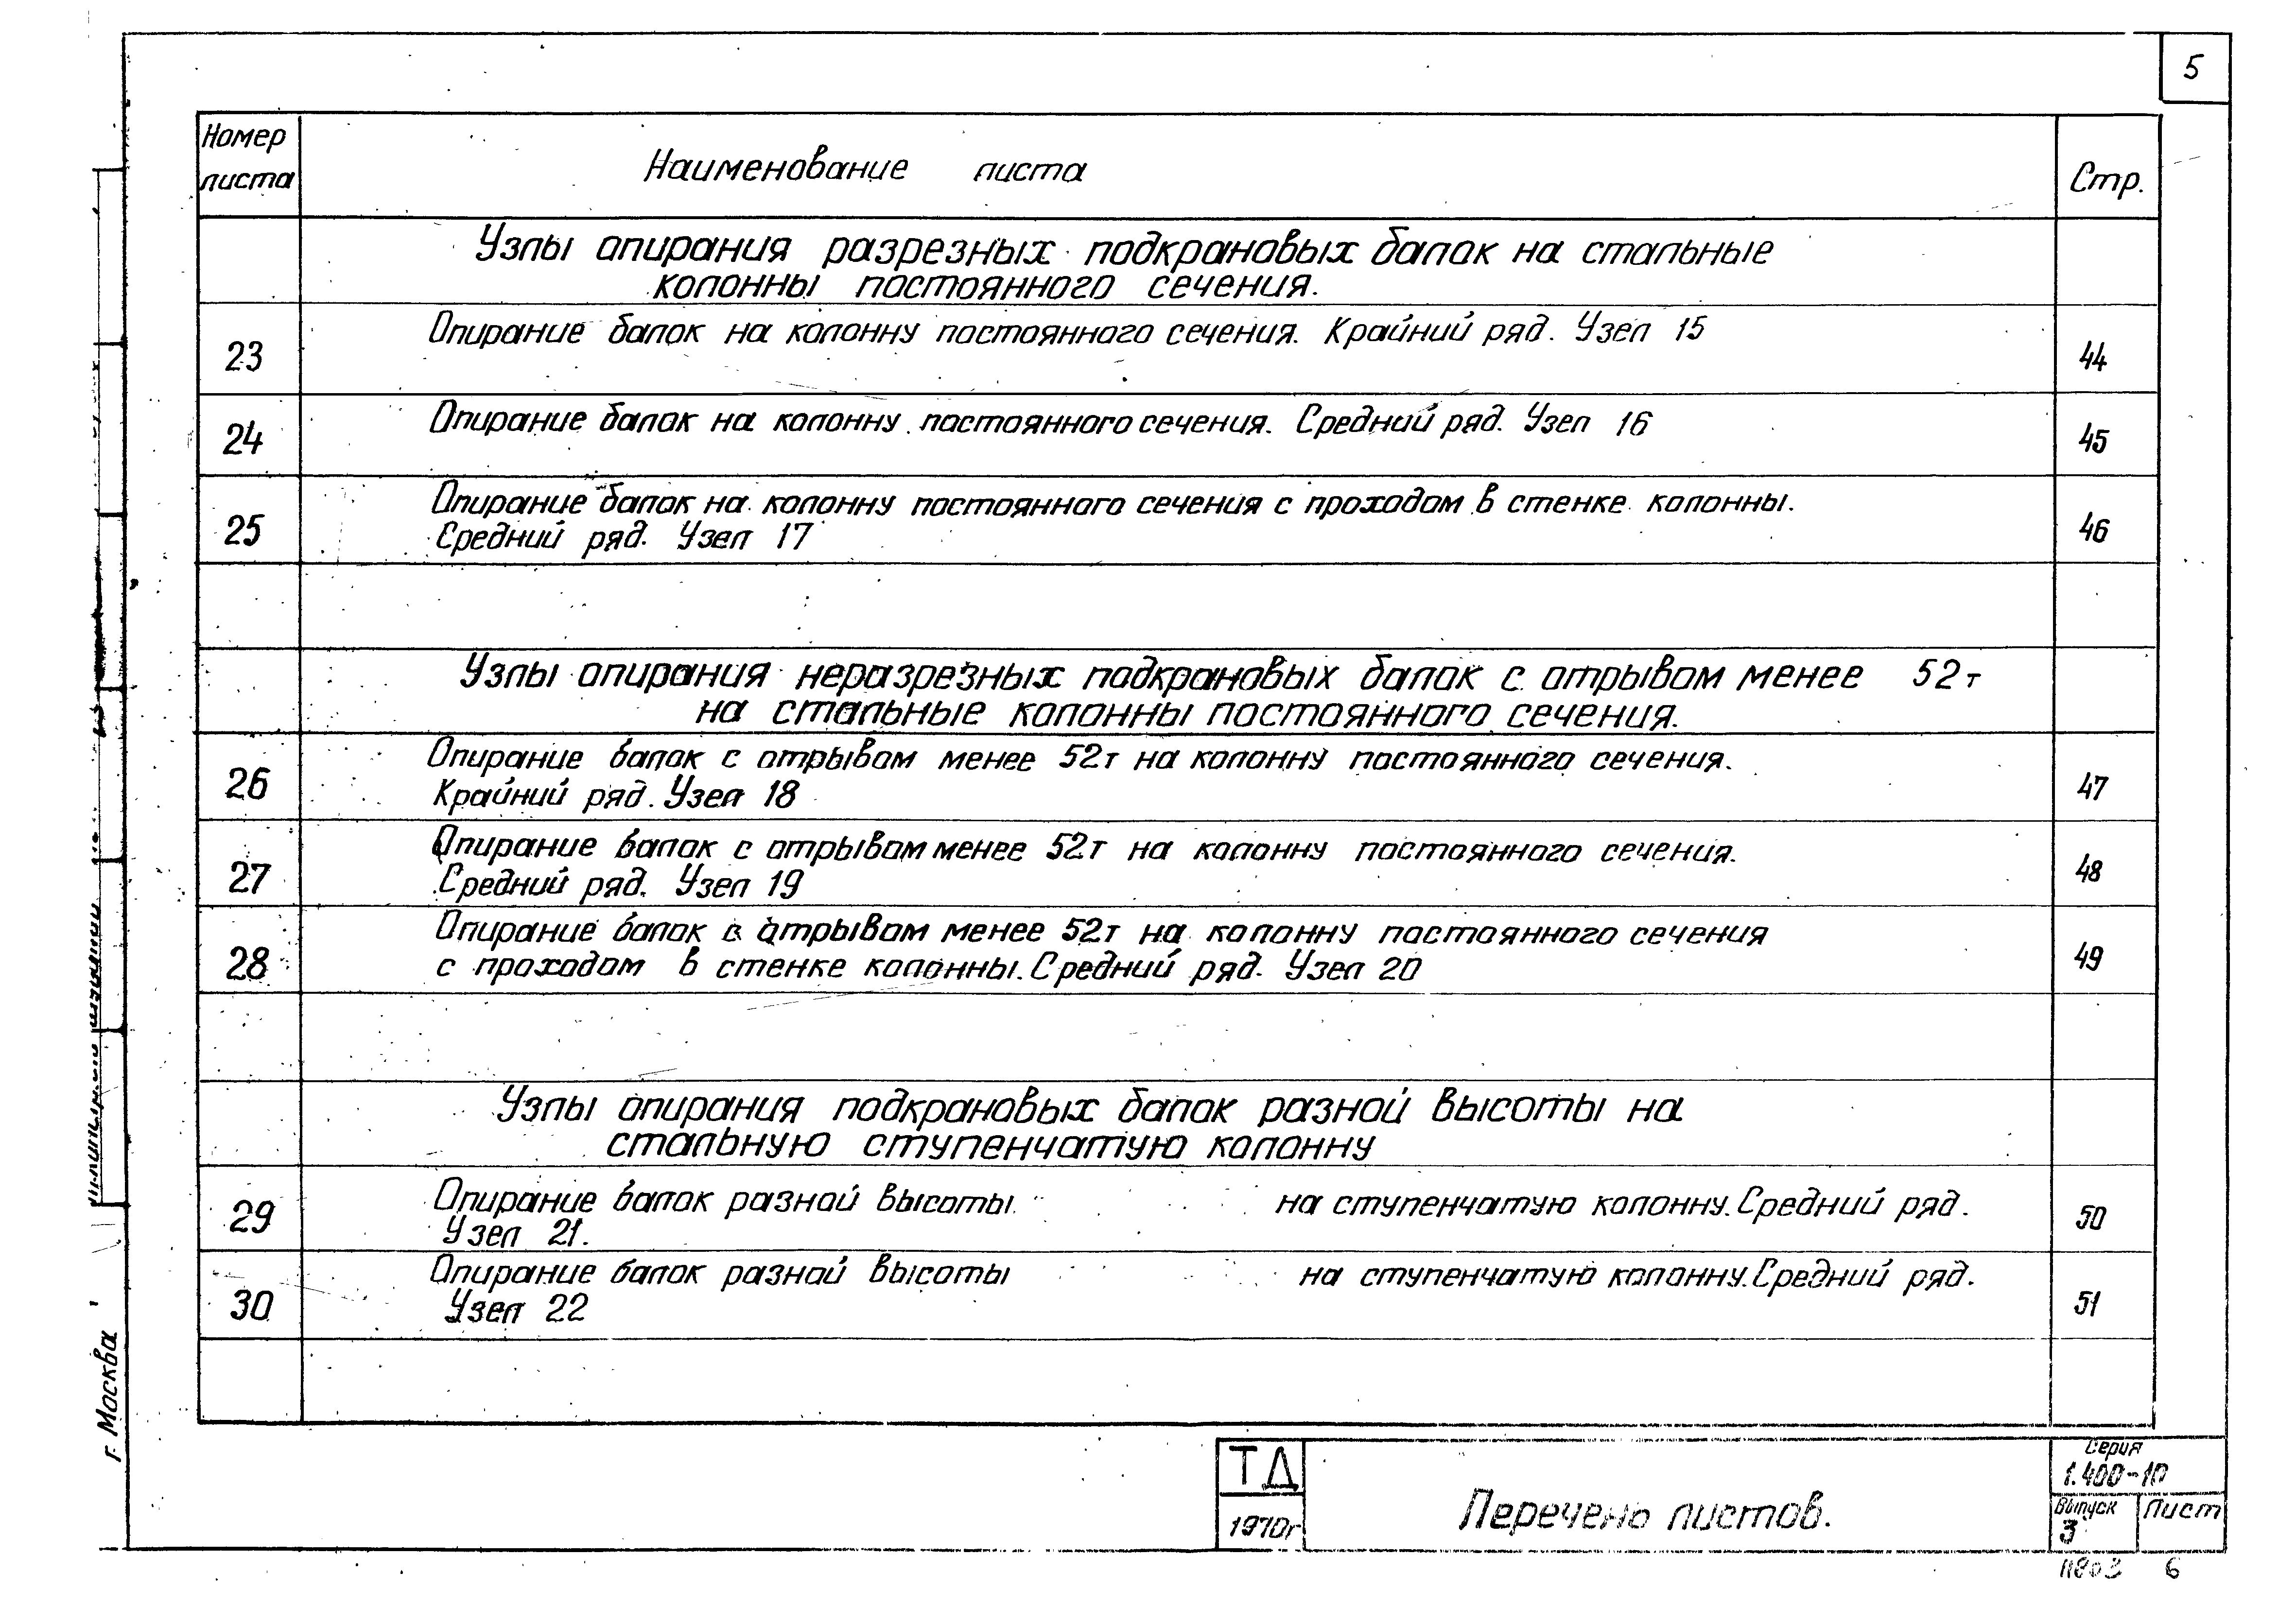 5
Номер
листа
Наименование листа
Стр.
Узлы опирания разрезных подкрановых балок на стальные
колонны постоянного сечения.
23
Опирание балок на колонну постоянного сечения. Крайний ряд. Узел 15
44
24
Опирание балок на колонну постоянного сечения. Средний ряд. Узел 16
45
25
Опирание балок на колонну постоянного сечения с проходом в стенке колонны.
Средний ряд. Узел 17
46
Узлы опирания неразрезных подкрановых балок с отрывом менее 52т
на стальные колонны постоянного сечения.
26
Опирание балок с отрывом менее 52т на колонну постоянного сечения.
Крайний ряд. Узел 18
47
27
Опирание балок с отрывом менее 52т на колонну постоянного сечения.
Средний ряд. Узел 19
48
28
Опирание балок с отрывом менее 52т на колонну постоянного сечения
с проходом в стенке колонны. Средний ряд. Узел 20
49
Узлы опирания подкрановых балок разной высоты на
стальную ступенчатую колонну
29
Опирание балок разной высоты на ступенчатую колонну. Средний ряд.
Узел 21.
50
30
Опирание балок разной высоты на ступенчатую колонну. Средний ряд.
Узел 22
51
г. Москва
ТД
1970г
Перечень листов.
Серия
1.400-10
Выпуск
3
Лист
11803 6